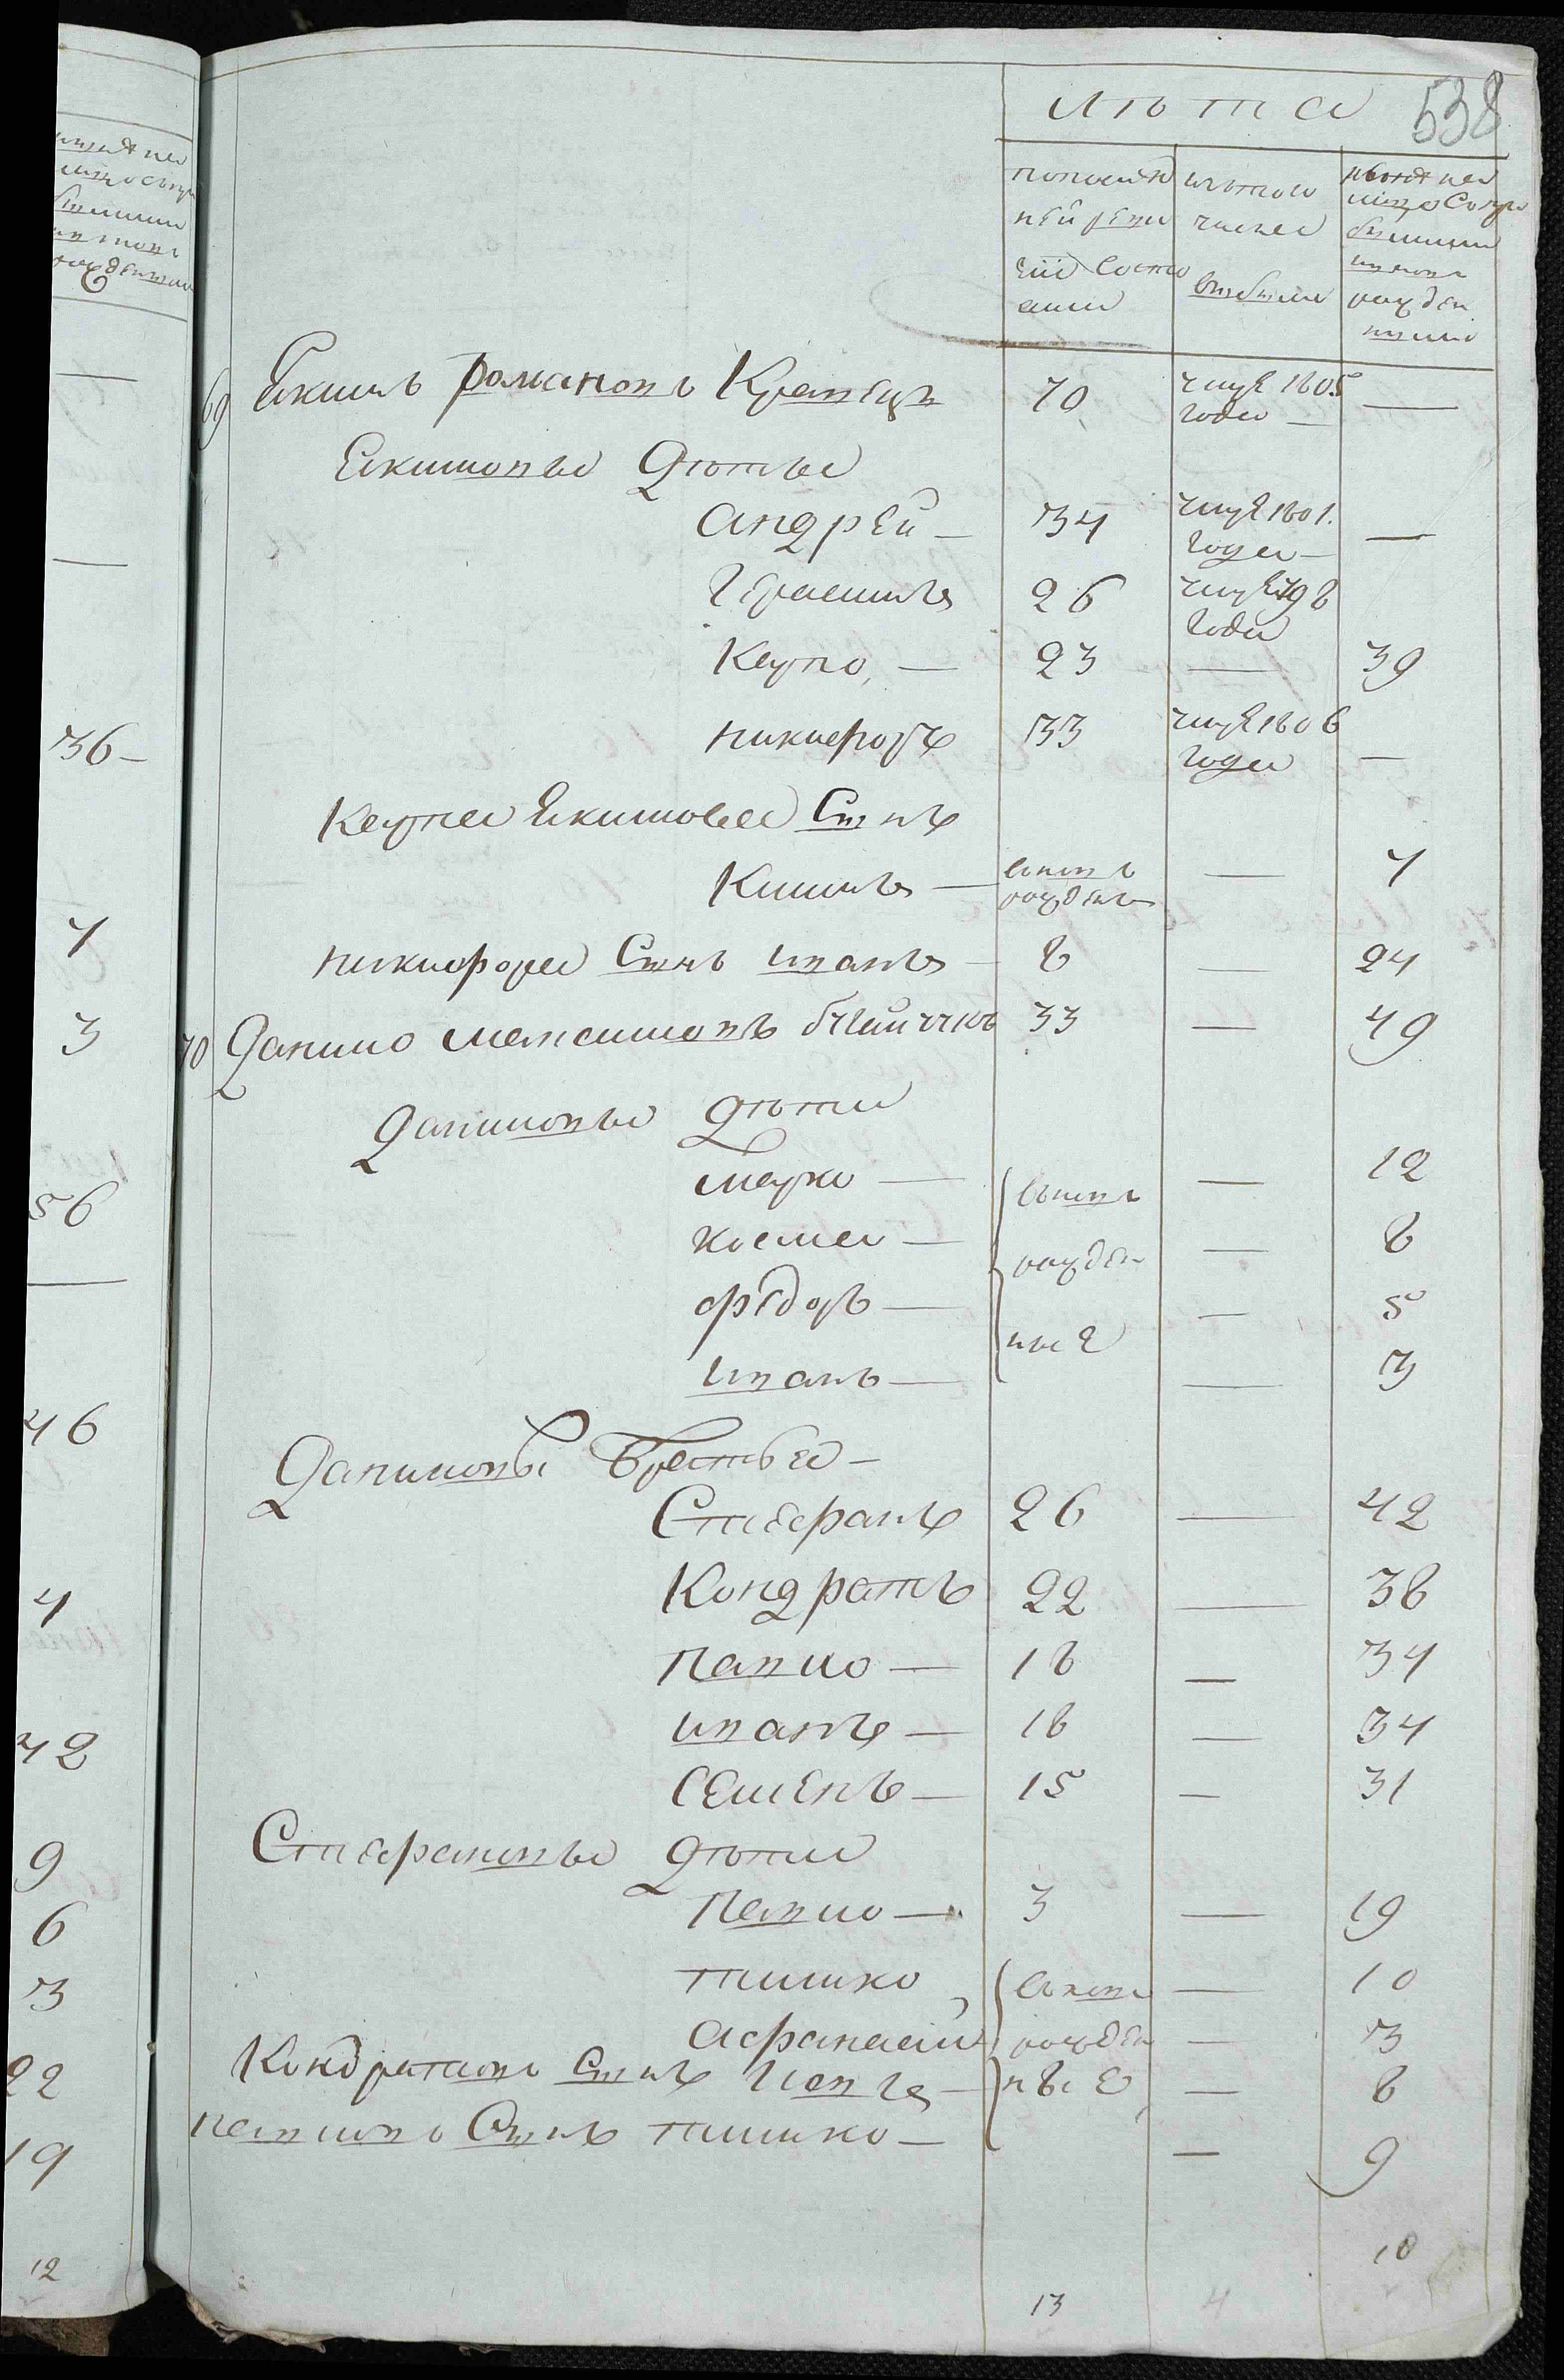 538
лѣта
попослѣд
ней реви
зіи состо
яли
изътого
числа
выбыли
нынѣ на
лицо съпри
былыми
иновъ
рожден
ными
69 Якимъ романовъ Кравецъ 70 умре 1805 года —
Якимовы дѣти
андрей — 34 умре 1801 года — —
герасимъ 26 умре 798 года
Карпо — 23 — 39
никифоръ 33 умре 1806 года —
Карпа Якимова Сынъ
Климъ — вновь рожденъ — 4
никифора Сынъ иванъ — 8 — 24
70 Данило максимовъ 33 — 49
Даниловы дѣти
марко — вновь рожденные — 12
косма — — 8
федоръ — — 5
иванъ — — 3
Даниловы братья —
Стефанъ 26 — 42
Кондратъ 22 — 38
павло — 18 — 34
иванъ — 18 — 34
Семенъ — 15 — 31
Стефановы дѣти
павло — 3 — 19
тимко вновь рожденные — 10
афанасий — 3
Кондратовъ сынъ — — 8
павловъ Сынъ тимко — — 9
13 4 18
36 —
4
3
56
46
4
42
9
6
3
22
19
12